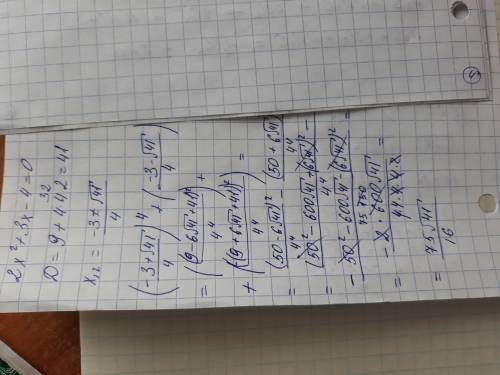 2x²+3x-4=0
D = 9+4·4·2=41
32
x₁,₂ = (-3±√41)/4
((-3+√41)/4)⁴ + ((-3-√41)/4)⁴
= ((9-6√41+41)²)/4⁴ +
+ ((9+6√41+41)²)/4⁴ =
= (50-6√41)²/4⁴ - (50+6√41)²/4⁴
= (50²-600√41+(6√41)²)/4⁴ -
- (50²-600√41-(6√41)²)/4⁴ =
= -2·600√41/(4·4·4·4) =
75 150
= 75√41/16